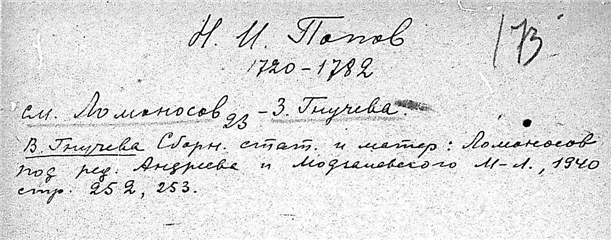 Н. И. Попов
173
1720-1782
см. Ломоносов 23 - З. Гнучева.
В. Гнучева Сборн. стат. и матер: Ломоносов
под ред. Андреева и Модзалевского М-Л., 1940
стр. 252, 253.